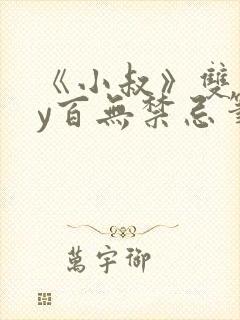 《小叔》雙
y百無禁忌
萬宇御